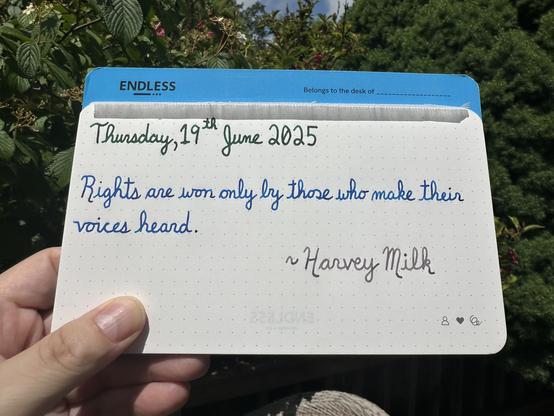 ENDLESS
Belongs to the desk of
Thursday, 19th June 2025
Rights are won only by those who make their
voices heard.
~ Harvey Milk
ENDLESS